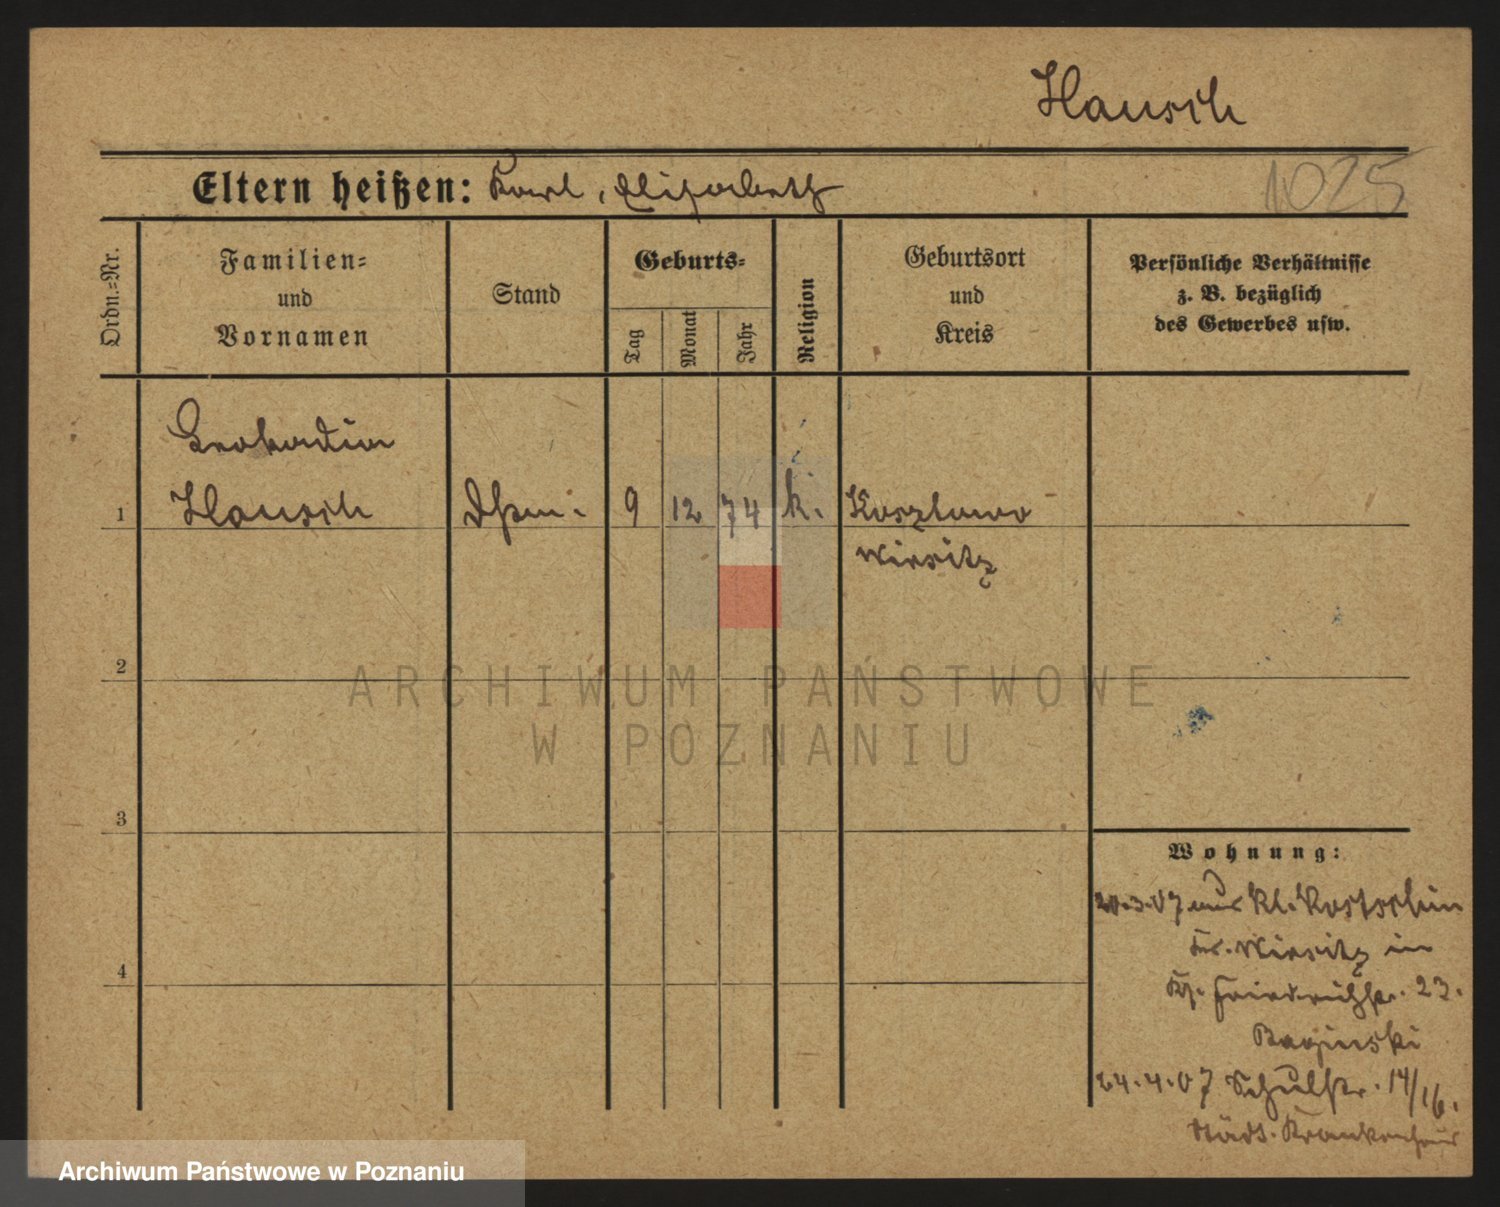 Hausch
1025
Eltern heißen: Karl, Elisabeth
Ordn.-Nr.
Familien-
und
Vornamen
Stand
Geburts-
Tag
Monat
Jahr
Religion
Geburtsort
und
Kreis
Persönliche Verhältnisse
z. B. bezüglich
des Gewerbes usw.
Leokadia
1 Hausch 9 12 74 k. Koszlowo
Wirsitz
2
3
4
Wohnung:
20.3.07 aus Kl. Kostschin
Kr. Wirsitz in
Friedrichstr. 23.
24.4.07 Schulstr. 14/16.
Städt. Krankenhaus
ARCHIWUM PAŃSTWOWE
W POZNANIU
Archiwum Państwowe w Poznaniu